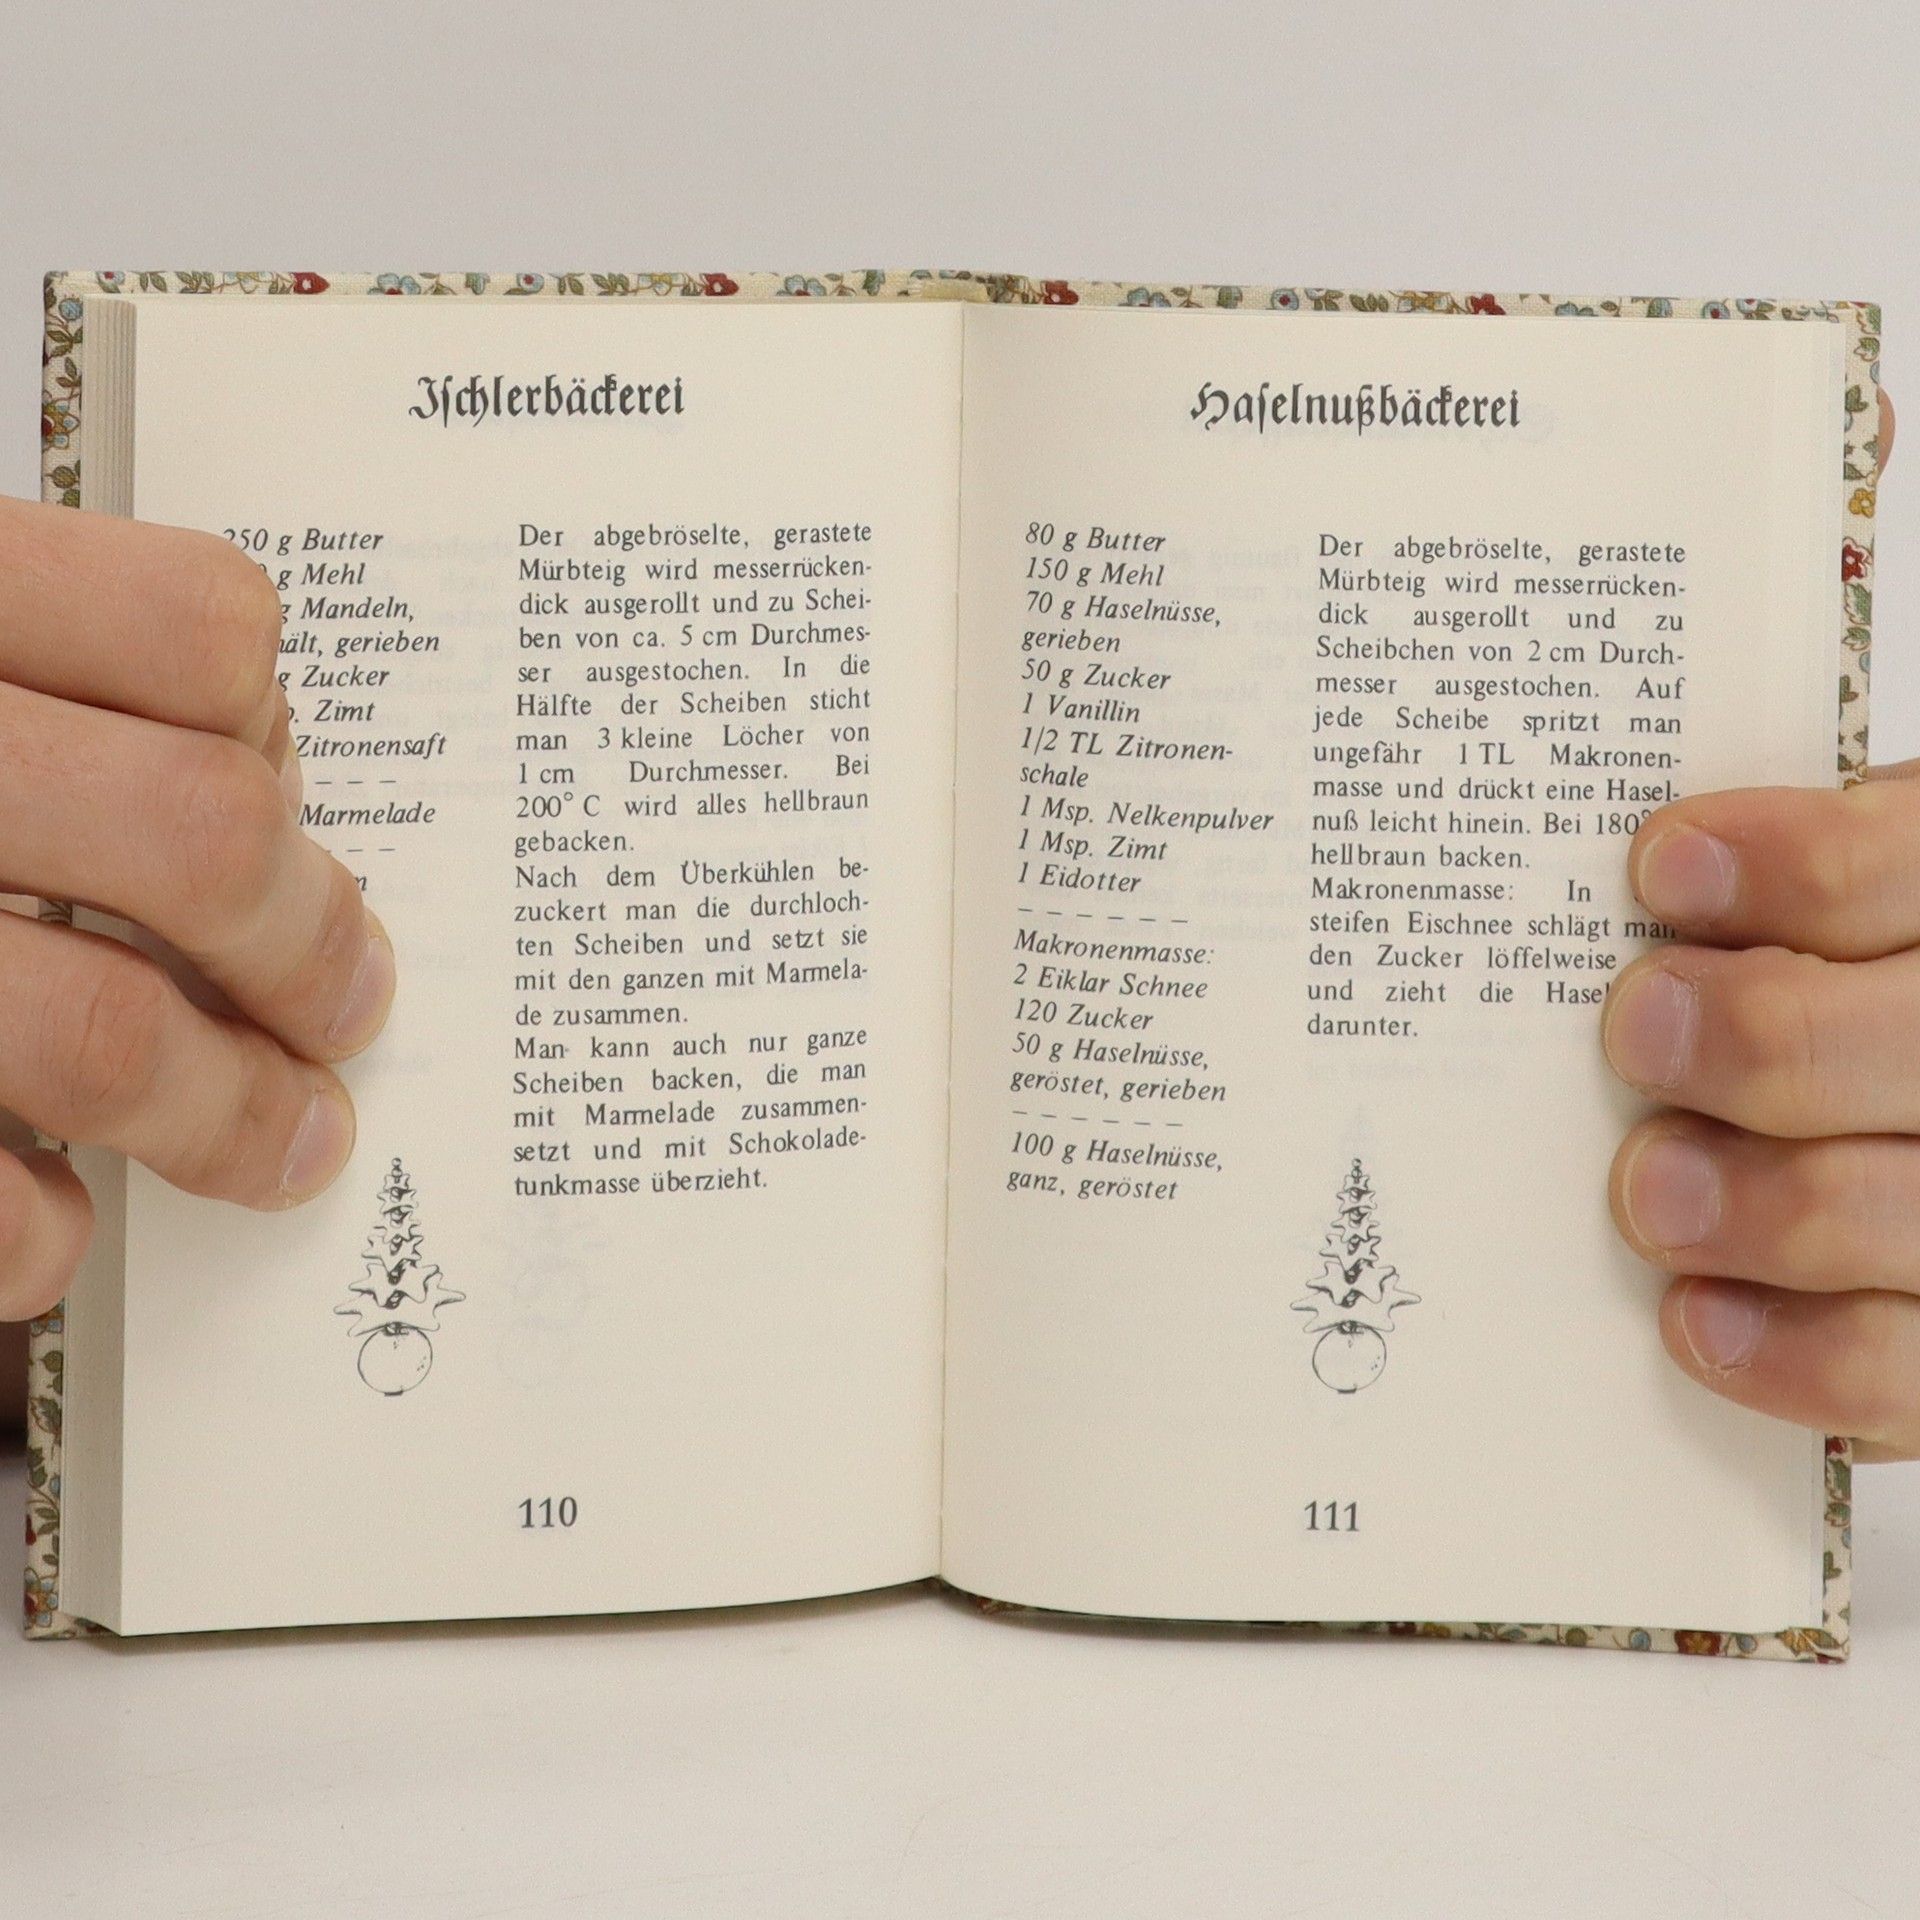 Ischlerbäckerei
250 g Butter
g Mehl
g Mandeln,
gerieben
g Zucker
Zimt
Zitronensaft
– – –
Marmelade
– – –
Der abgebröselte, gerastete
Mürbteig wird messerrücken-
dick ausgerollt und zu Schei-
ben von ca. 5 cm Durchmes-
ser ausgestochen. In die
Hälfte der Scheiben sticht
man 3 kleine Löcher von
1 cm Durchmesser. Bei
200° C wird alles hellbraun
gebacken.
Nach dem Überkühlen be-
zuckert man die durchloch-
ten Scheiben und setzt sie
mit den ganzen mit Marmela-
de zusammen.
Man kann auch nur ganze
Scheiben backen, die man
mit Marmelade zusammen-
setzt und mit Schokolade-
tunkmasse überzieht.
110
Haselnußbäckerei
80 g Butter
150 g Mehl
70 g Haselnüsse,
gerieben
50 g Zucker
1 Vanillin
1/2 TL Zitronen-
schale
1 Msp. Nelkenpulver
1 Msp. Zimt
1 Eidotter
– – – – – –
Makronenmasse:
2 Eiklar Schnee
120 Zucker
50 g Haselnüsse,
geröstet, gerieben
– – – – – –
100 g Haselnüsse,
ganz, geröstet
Der abgebröselte, gerastete
Mürbteig wird messerrücken-
dick ausgerollt und zu
Scheibchen von 2 cm Durch-
messer ausgestochen. Auf
jede Scheibe spritzt man
ungefähr 1 TL Makronen-
masse und drückt eine Hasel-
nuß leicht hinein. Bei 180°
hellbraun backen.
Makronenmasse: In
steifen Eischnee schlägt man
den Zucker löffelweise
und zieht die
darunter.
111